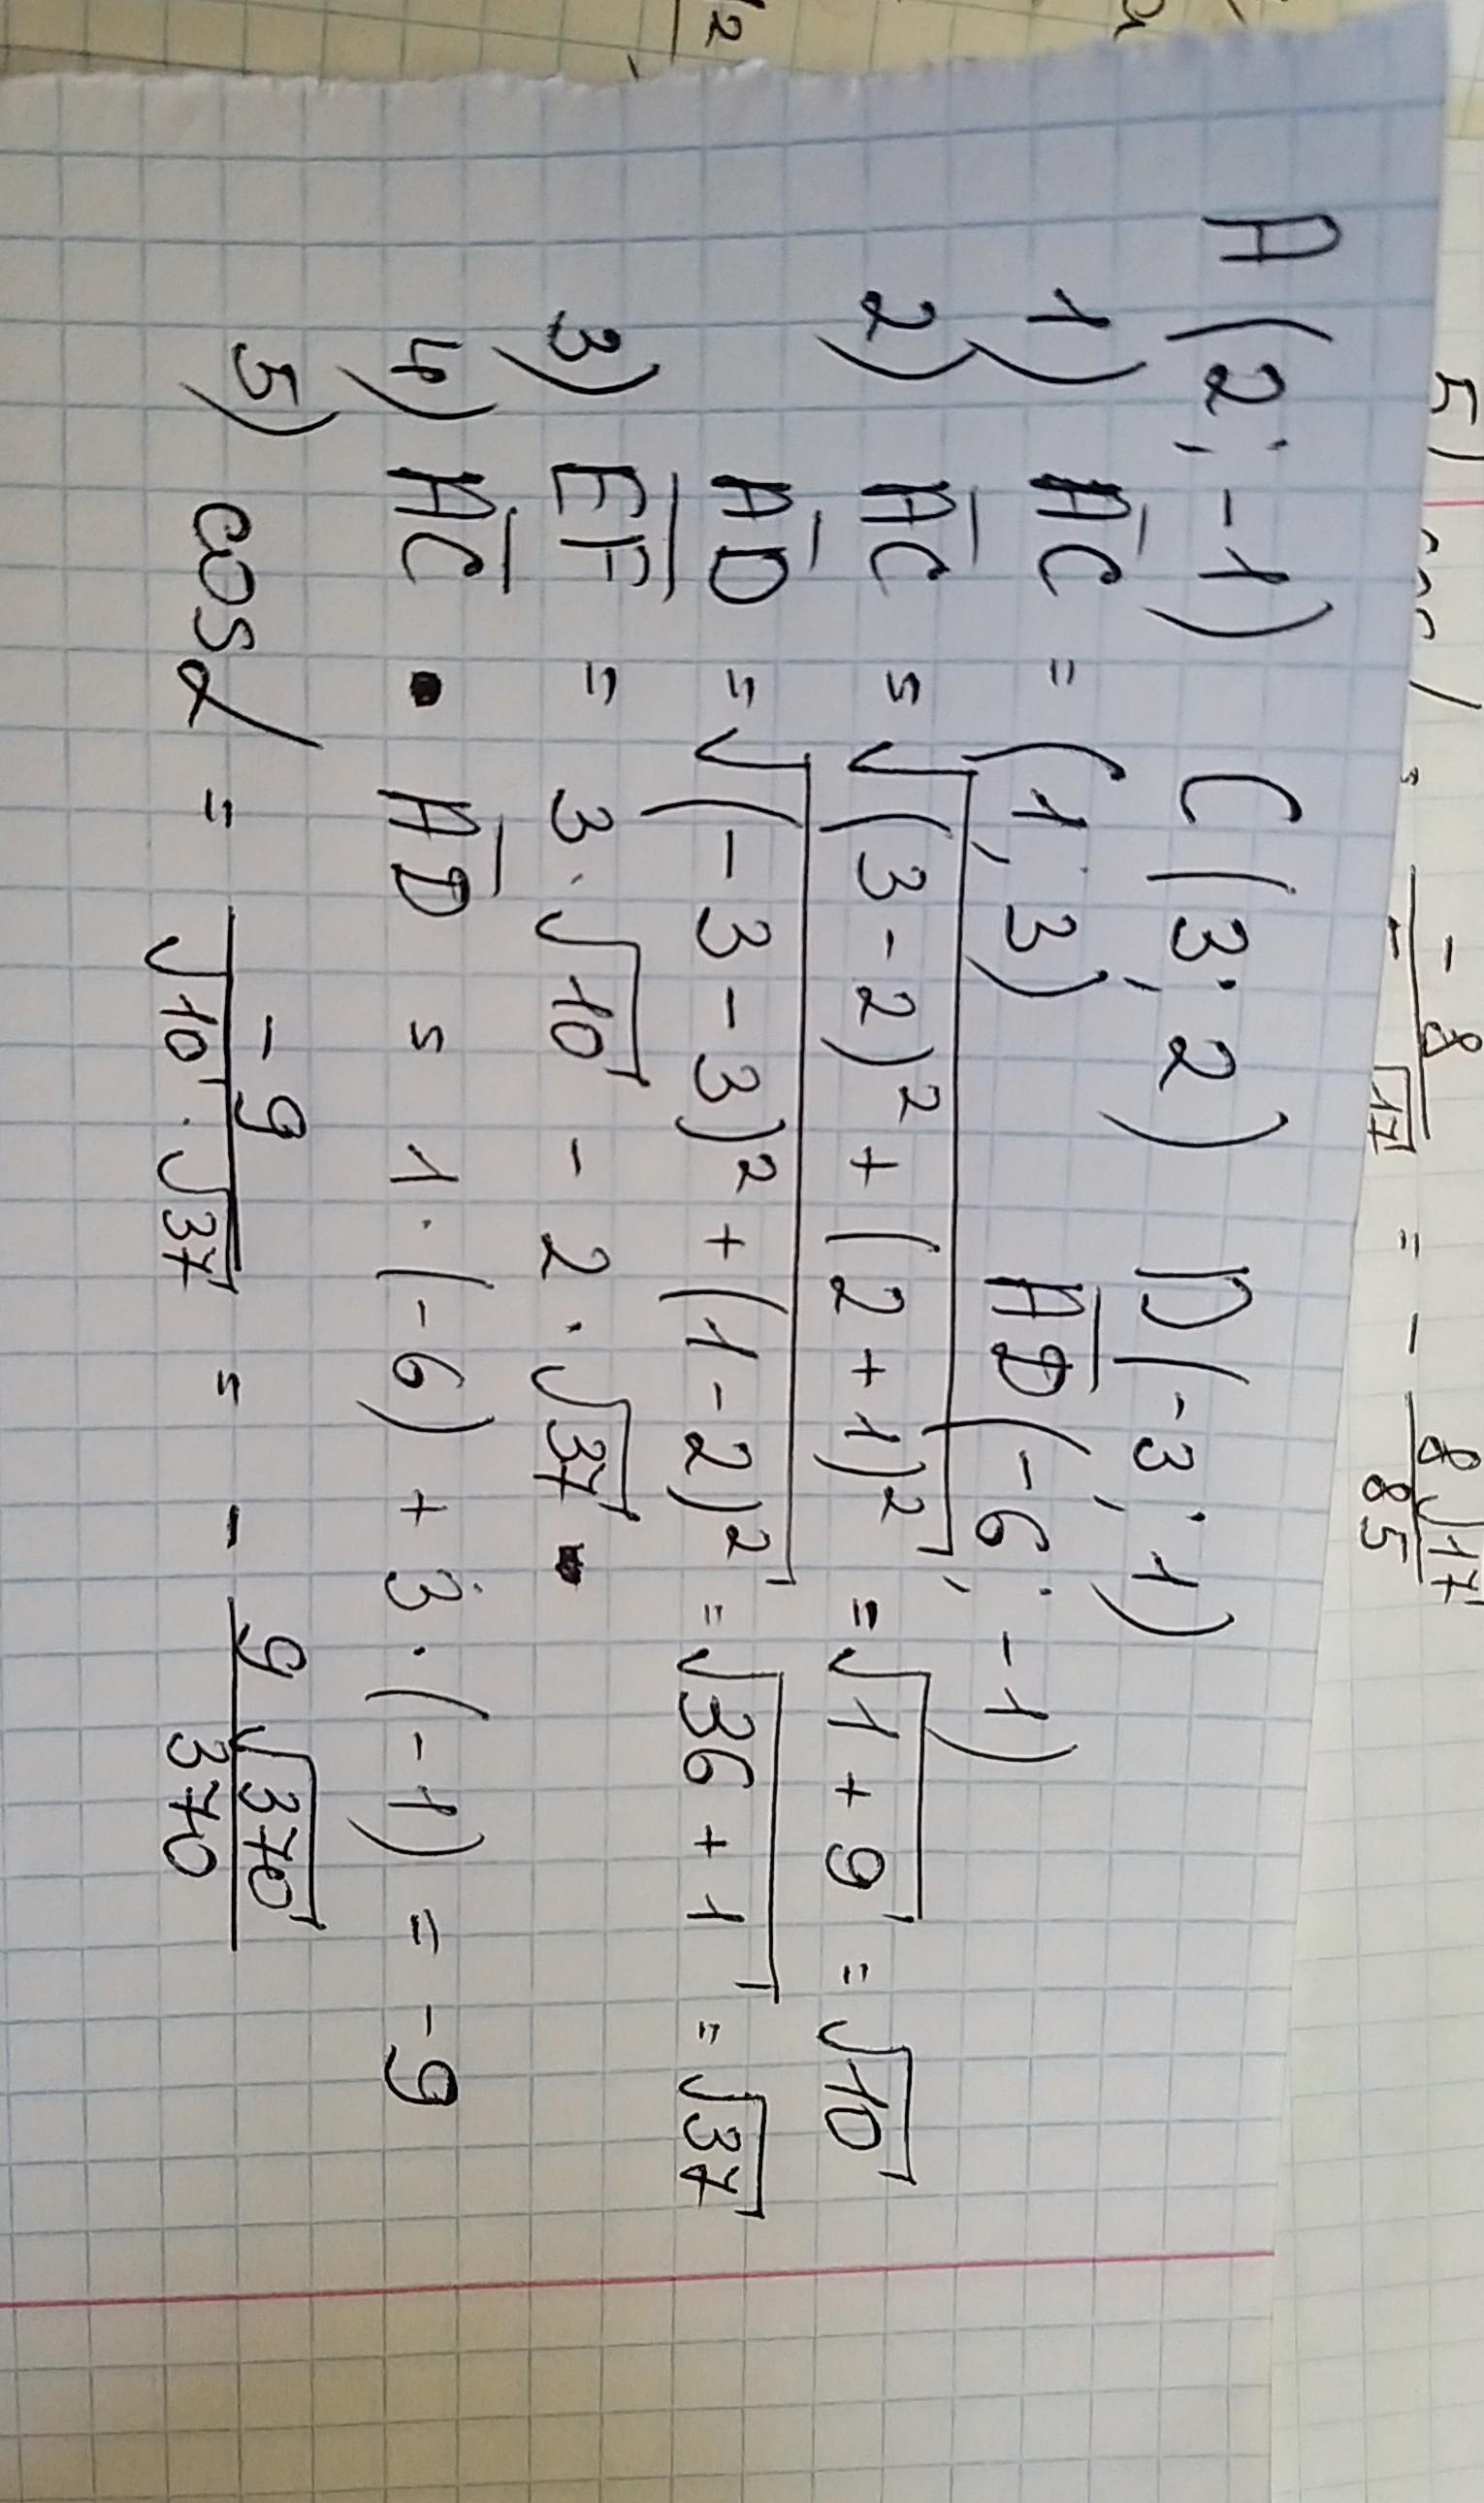 5) cos = -8 / √17 = - 8√17 / 85
A(2; -1) C(3; 2) D(-3; 1)
1) AC = (1; 3) AD(-6; -1)
2) AC = √(3-2)² + (2+1)² = √1+9 = √10
AD = √(-3-3)² + (1-2)² = √36+1 = √37
3) EF = 3·√10 - 2·√37
4) AC · AD = 1·(-6) + 3·(-1) = -9
5) cos α = -9 / √10 · √37 = - 9√370 / 370